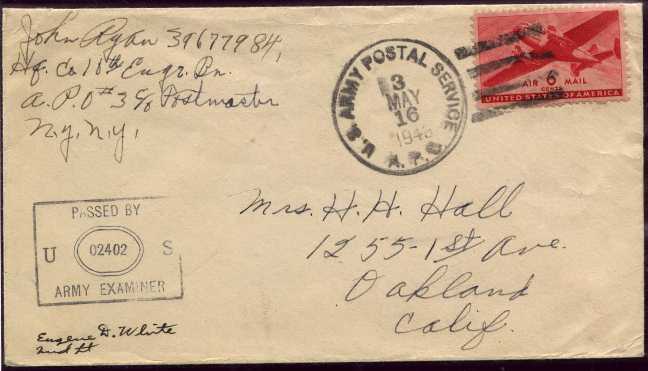 John Ryan 39677984,
Hq. Co 10th Engr. Bn.
A.P.O #3 c/o Postmaster
N.Y., N.Y.,
U.S. ARMY POSTAL SERVICE
3
MAY
16
A.P.O
AIR 6 MAIL
CENTS
UNITED STATES OF AMERICA
PASSED BY
U 02402 S
ARMY EXAMINER
Mrs. H. H. Hall
1255-1st Ave.
Oakland
Calif.
Eugene D. White
2nd Lt